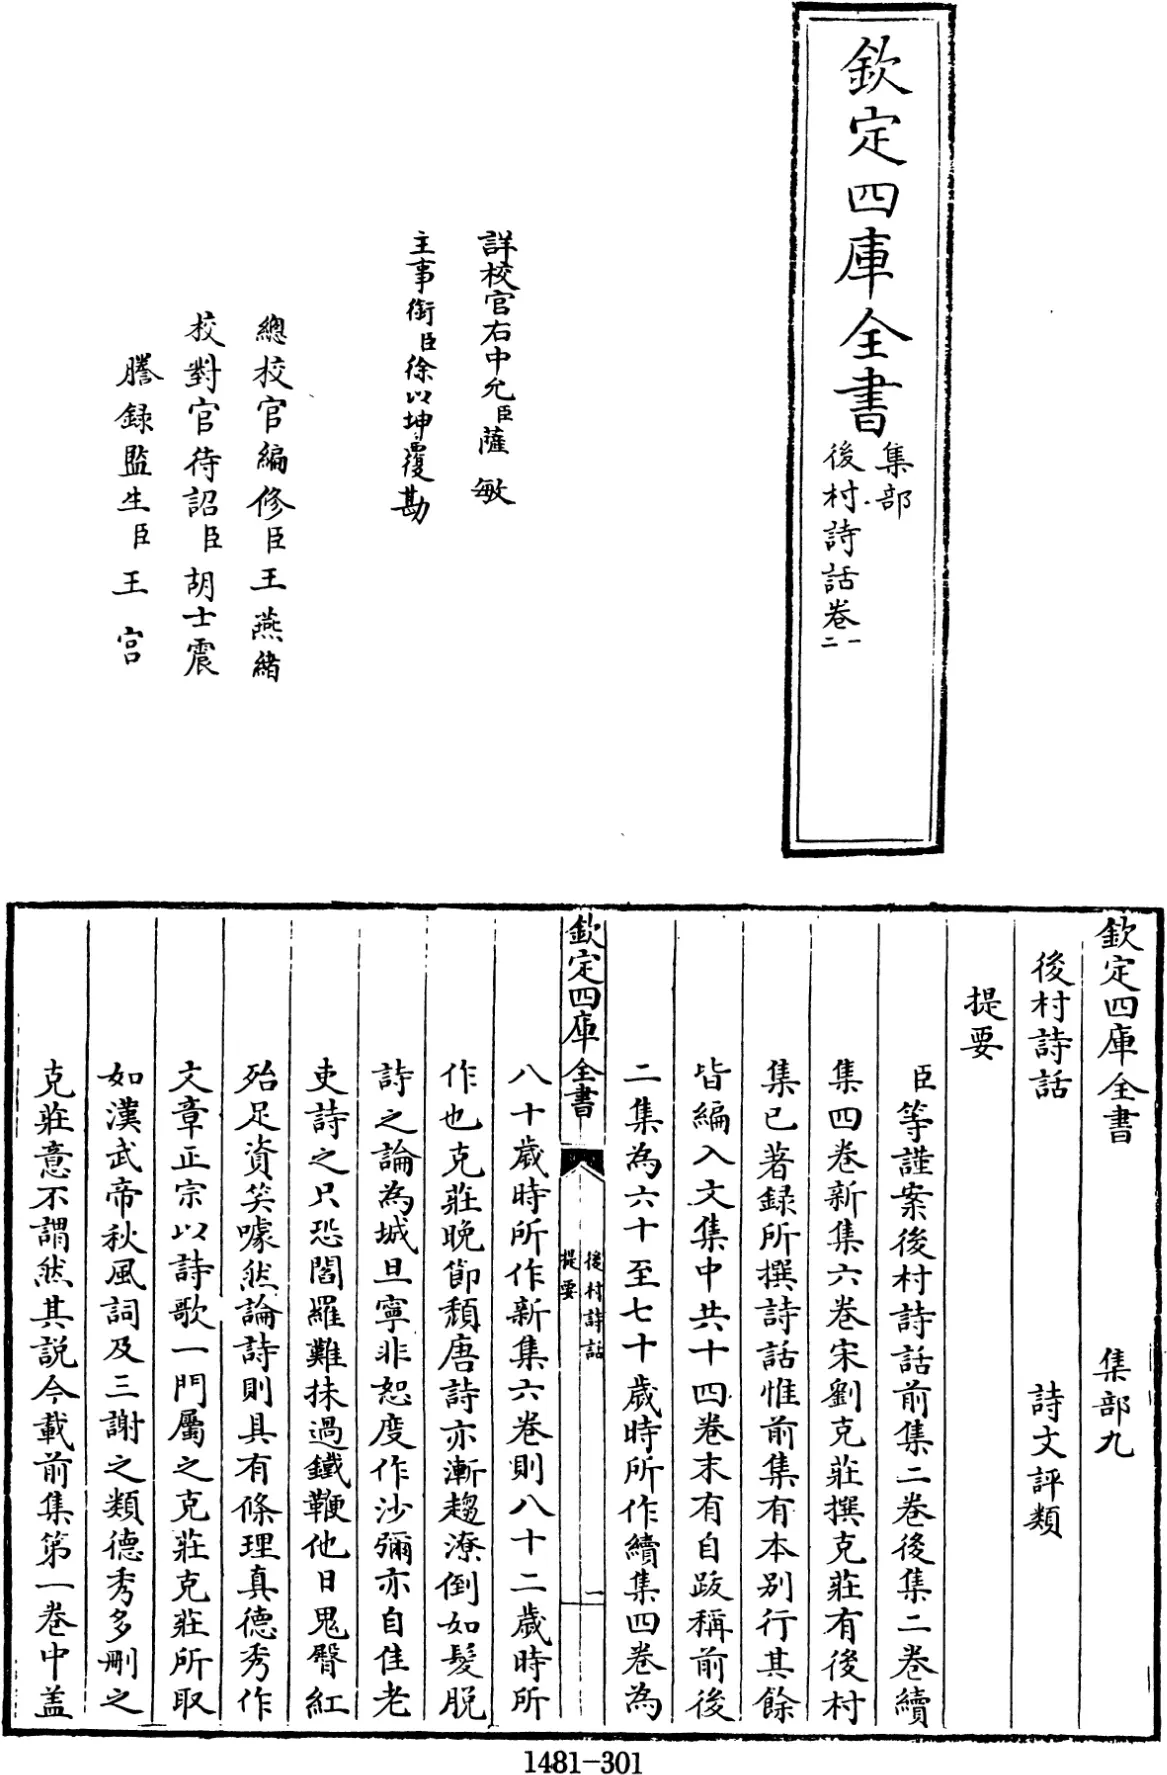 欽定四庫全書
集部
後村詩話卷一
二
詳校官右中允臣薩敏
主事銜臣徐以坤覆勘
總校官編修臣王燕緒
校對官待詔臣胡士震
謄録監生臣王宫
欽定四庫全書 集部九
後村詩話 詩文評類
提要
臣等謹案後村詩話前集二卷後集二卷續
集四卷新集六卷宋劉克莊撰克莊有後村
集已著録所撰詩話惟前集有本别行其餘
皆編入文集中共十四卷末有自跋稱前後
二集為六十至七十歲時所作續集四卷為
欽定四庫全書
後村詩話
提要
一
八十歲時所作新集六卷則八十二歲時所
作也克莊晚節頽唐詩亦漸趨潦倒如髪脱
詩之論為城旦寧非恕度作沙彌亦自佳老
吏詩之只恐閻羅難抹過鐵鞭他日鬼臀紅
殆足資笑噱然論詩則具有條理真德秀作
文章正宗以詩歌一門屬之克莊克莊所取
如漢武帝秋風詞及三謝之類德秀多刪之
克莊意不謂然其説今載前集第一卷中盖
1481-301